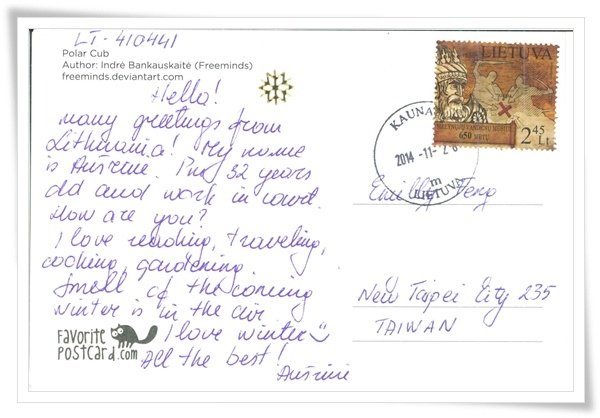 LT-410441
Polar Cub
Author: Indrė Bankauskaitė (Freeminds)
freeminds.deviantart.com
Hello!
Many greetings from
Lithuania! My name
is Aušrinė. I'm 32 years
old and work in court.
How are you?
I love reading, traveling,
cooking, gardening.
Smell of the coming
winter is in the air.
I love winter
All the best!
Aušrinė
FAVORITE
POSTCARD.com
LIETUVA
MĖLYNŲJŲ VANDENŲ MŪŠIUI
650 METŲ
2 45 Lt
KAUNA
2014 -11- 2
m
LIETUVA
Emilly Feng
New Taipei City 235
TAIWAN